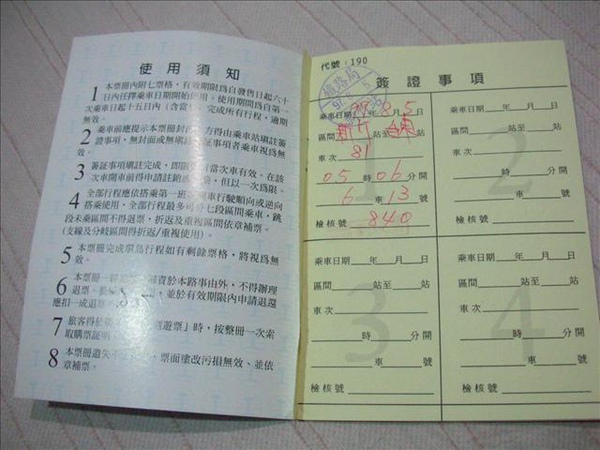 使用須知
1 本票冊內附七票格，有效期限為自發售日起六十
日內任擇乘車日期開始使用。使用期間為自第一
次乘車日起十五日內（含當日）完成所有行程，逾期
無效。
2 乘車前應提示本票冊封面 方得由乘車站填註簽
證事項，無封面或無填註簽證事項者乘車視為無
效。
3 簽証事項填註完成，即限 當次車有效。在該
次車開車前得申請註銷 但以一次為限。
4 全部行程應依搭乘第一班 車行駛順向或逆向
搭乘使用，全部行程最多可分七段區間乘車，跳
段未乘區間不得退票，折返及重複區間依章補票。
（支線及分岐區間得折返/重複使用）。
5 本票冊完成環島行程如有剩餘票格，將視為無
效。
6 本票冊一經 責於本路事由外，不得辦理
退票。 並於有效期限內申請退還
應扣一成退票
7 旅客得於 遊票」時，按整冊一次索
取購票証明
8 本票冊遺失不 票面塗改污損無效、並依
章補票。
代號：190
簽證事項
乘車日期 97年8月5日
區間 新竹站至 站
車次 81
05時06分開
6車13號
檢核號 840
1
乘車日期 年 月 日
區間 站至 站
車次
時 分開
車 號
檢核號
2
乘車日期 年 月 日
區間 站至 站
車次
時 分開
車 號
檢核號
3
乘車日期 年 月 日
區間 站至 站
車次
時 分開
車 號
檢核號
4